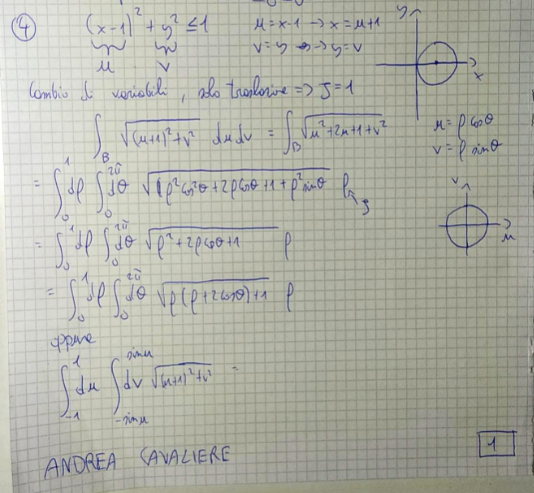 ④ (x-1)² + y² ≤ 1 μ = x-1 → x = μ+1 y
μ v v = y → y = v x
Cambio di variabili, solo traslazione => J = 1
∫_B √((μ+1)²+v²) dμdv = ∫_B √(μ²+2μ+1+v²) μ = ρ cosθ
v = ρ sinθ
= ∫₀¹ dρ ∫₀^2π dθ √(ρ²cos²θ+2ρcosθ+1+ρ²sinθ) ρ J v
= ∫₀¹ dρ ∫₀^2π dθ √(ρ²+2ρcosθ+1) ρ μ
= ∫₀¹ dρ ∫₀^2π dθ √(ρ(ρ+2cosθ)+1) ρ
oppure
∫₋₁¹ dμ ∫_-sinμ^sinμ dv √((μ+1)²+v²) =
ANDREA CAVALIERE 1